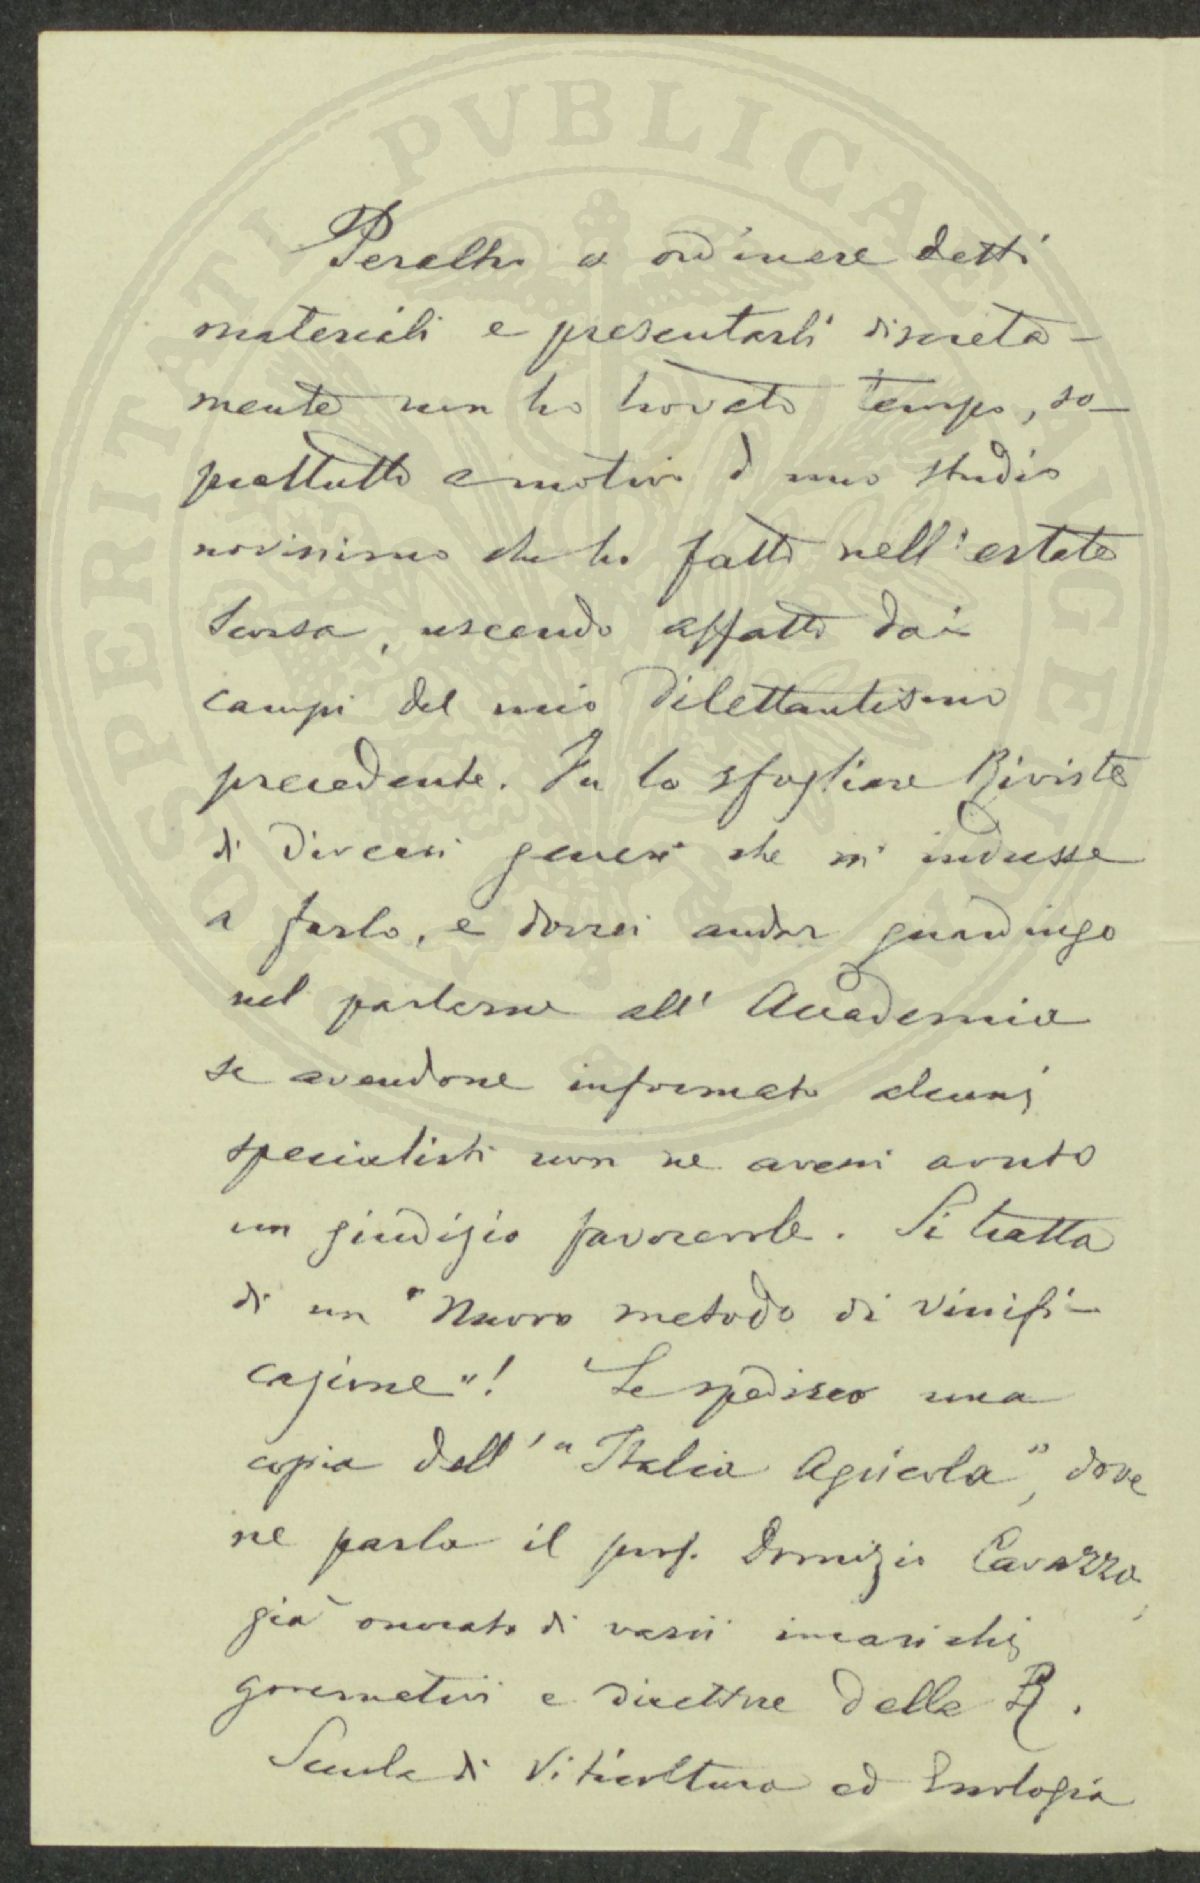 PROSPERITATI PVBLICAE AVGENDAE
Peraltro a ordinare detti
materiali e presentarli discreta-
mente non ho trovato tempo, so-
prattutto a motivo d'uno studio
novissimo che ho fatto nell'estate
scorsa, uscendo affatto dai
campi del mio dilettantismo
precedente. Fu lo sfogliare Riviste
di diversi generi che m'indusse
a farlo, e dovrei andar guardingo
nel parlarne all'Accademia
se avendone informato alcuni
specialisti non ne avessi avuto
un giudizio favorevole. Si tratta
di un "Nuovo metodo di vinifi-
cazione"! Le spedisco una
copia dell'"Italia Agricola", dove
ne parla il prof. Domizio Cavazza,
già onorato di varii incarichi
governativi e direttore della R.
Scuola di Viticoltura ed Enologia